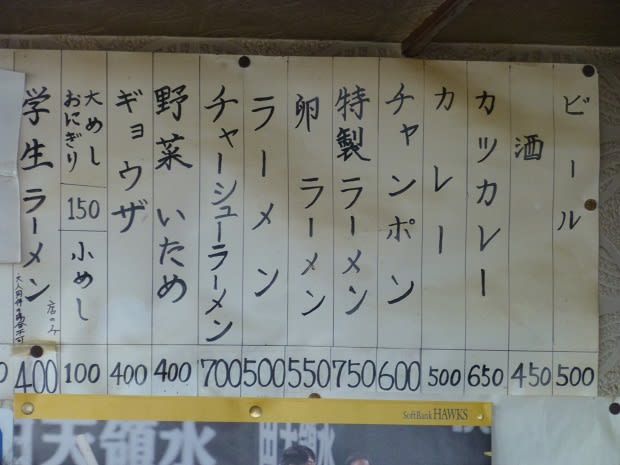 ビール
500
酒
450
カツカレー
650
カレー
500
チャンポン
600
特製ラーメン
750
卵ラーメン
550
ラーメン
500
チャーシューラーメン
700
野菜いため
400
ギョウザ
400
大めし
おにぎり
150
小めし
100
学生ラーメン
店のみ
大人同伴の場合不可
400
0
SoftBank HAWKS
天領水
日田天領水